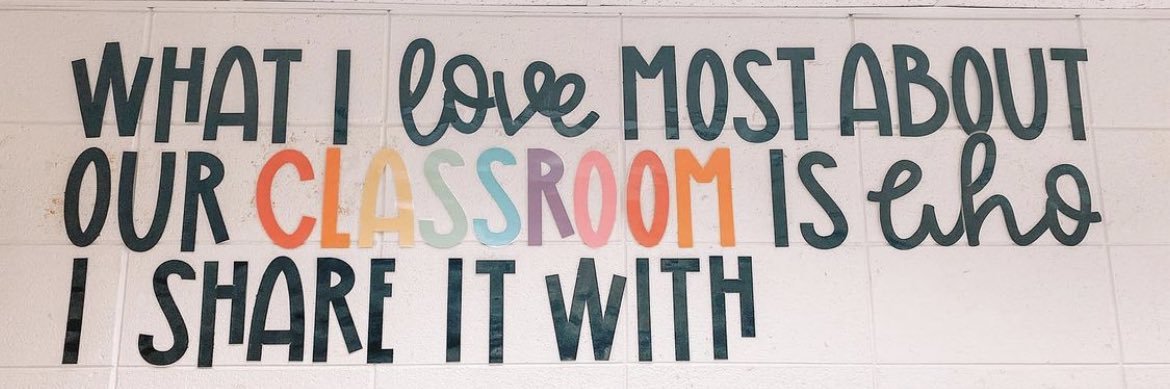 WHAT I love MOST ABOUT
OUR CLASSROOM IS who
I SHARE IT WITH